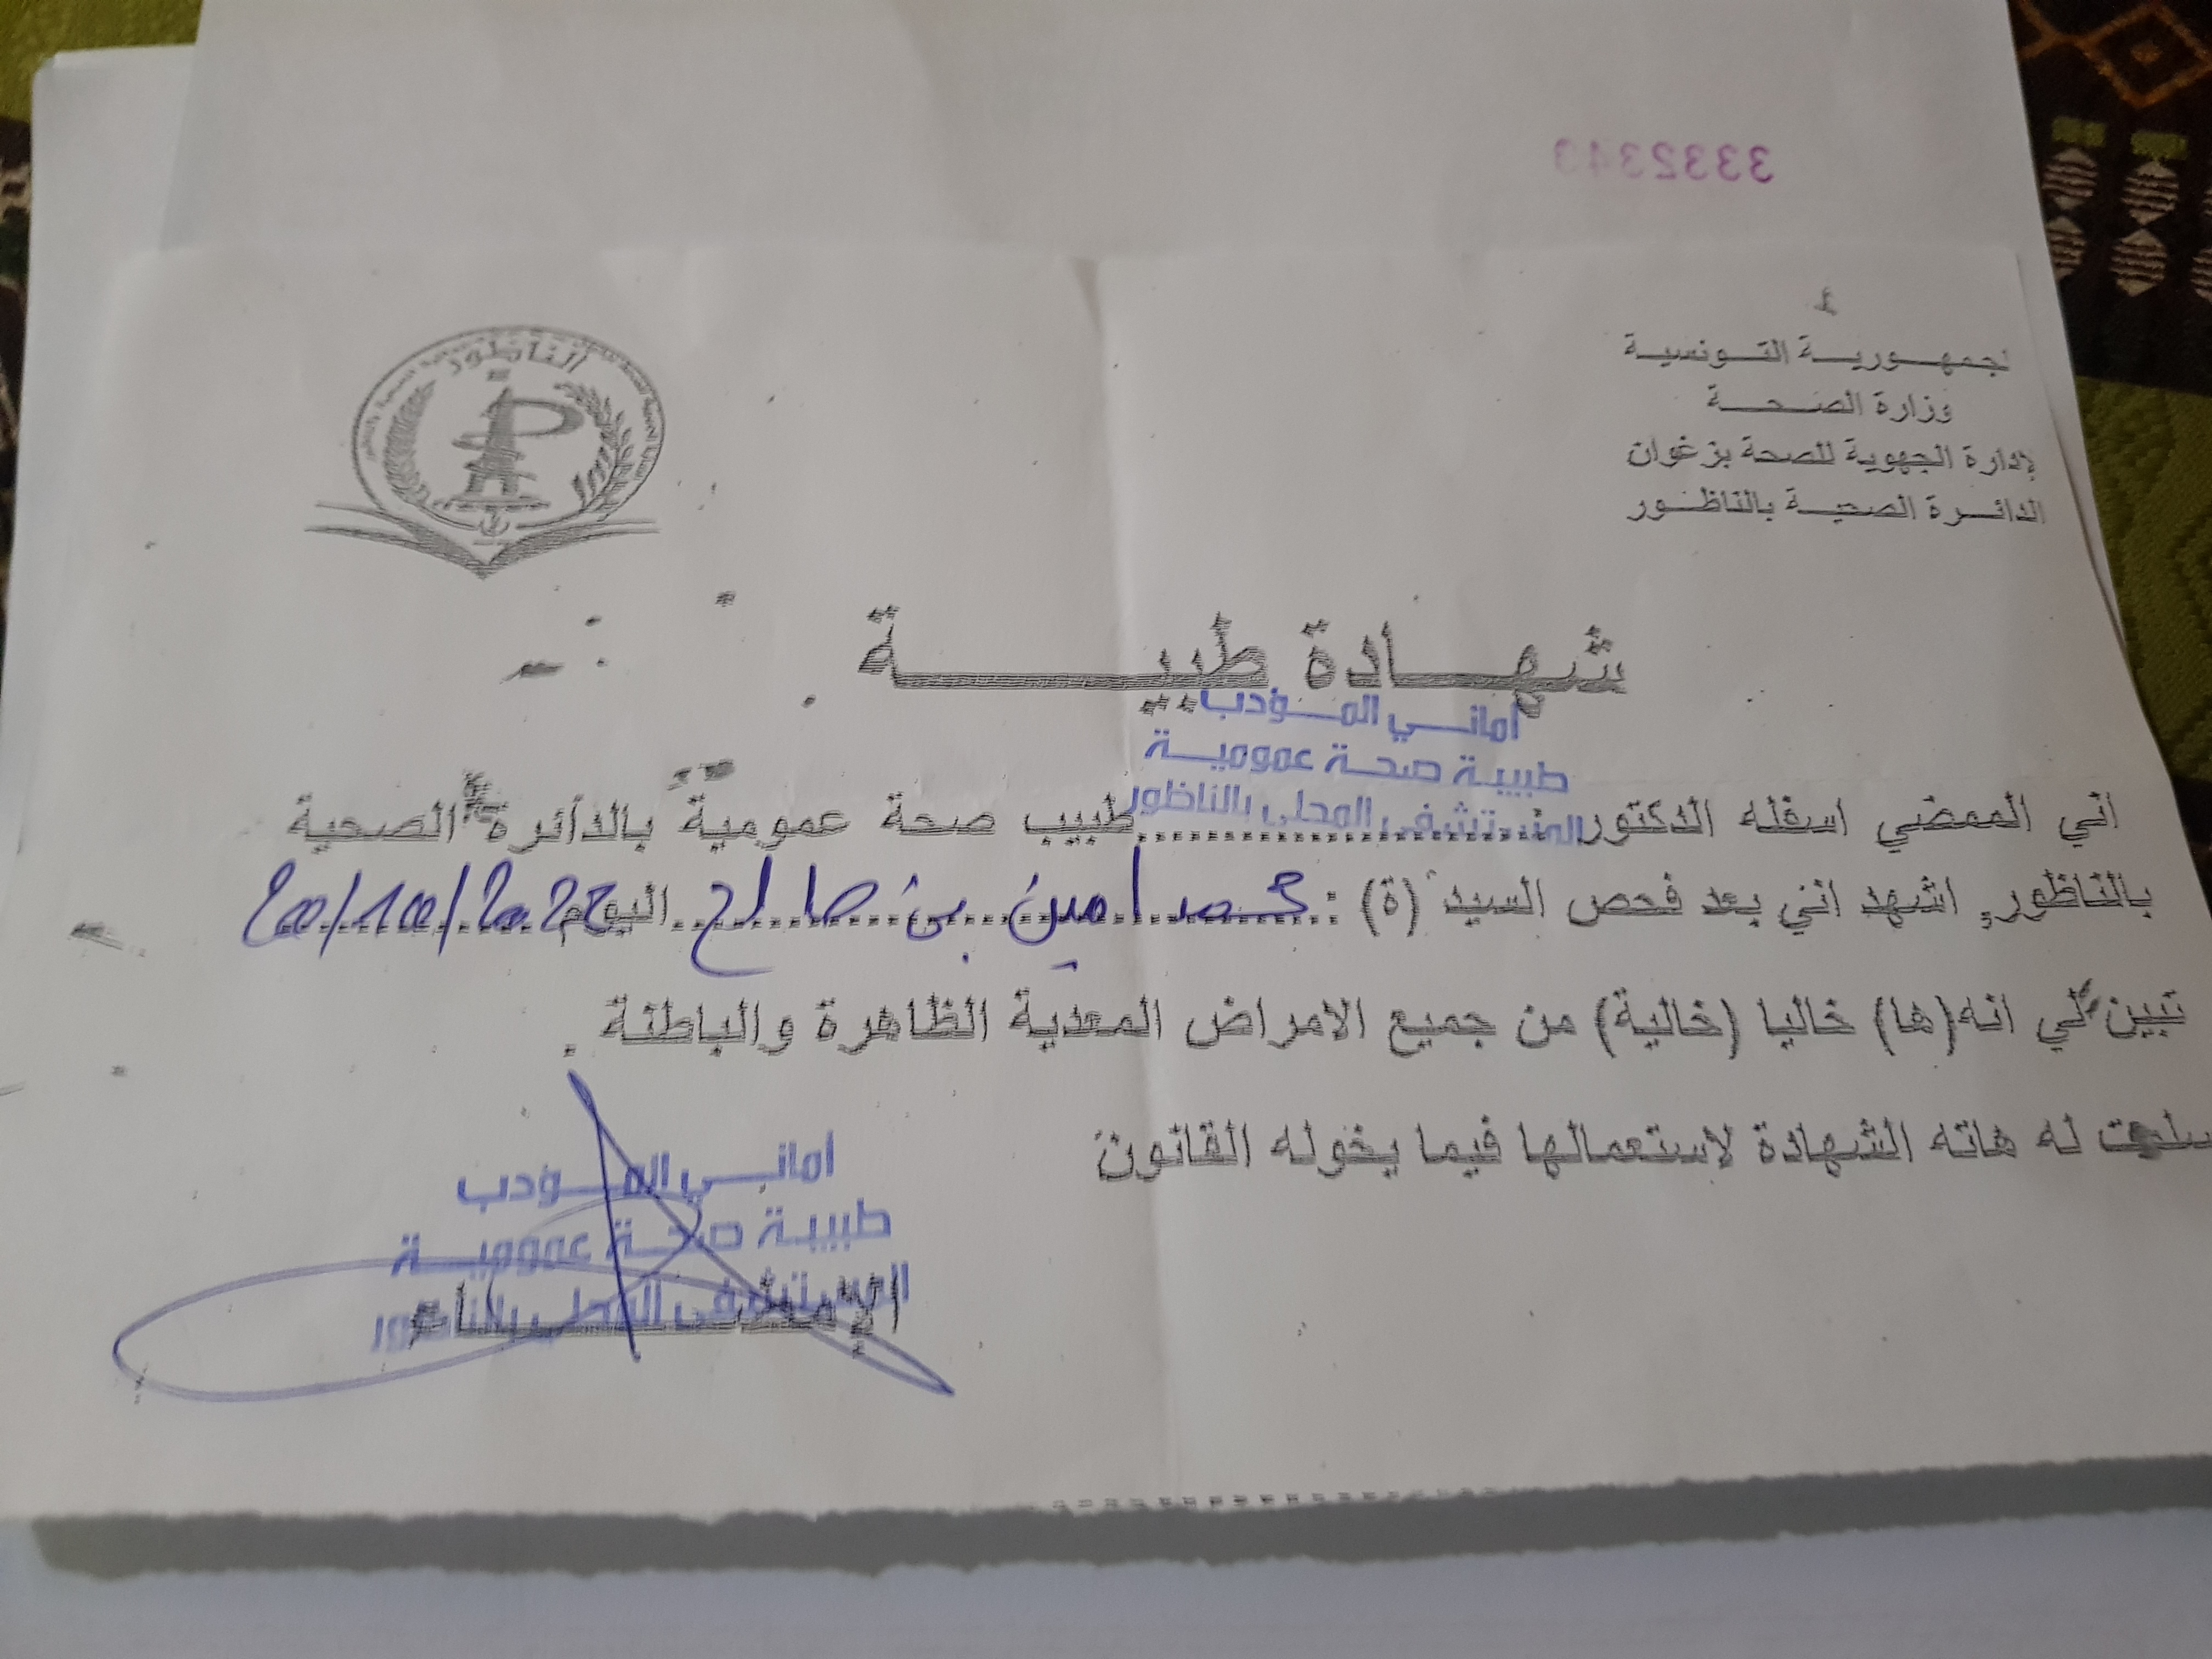 3332343
الجمهورية التونسية
وزارة الصحة
الإدارة الجهوية للصحة بزغوان
الدائرة الصحية بالناظور
الناظور
شهادة طبية
أماني المؤدب
طبيبة صحة عمومية
المستشفى المحلي بالناظور
اني الممضي اسفله الدكتور: طبيب صحة عمومية بالدائرة الصحية
بالناظور, اشهد اني بعد فحص السيد (ة) : محمد امين بن صالح اليوم
تبين لي انه(ها) خاليا (خالية) من جميع الامراض المعدية الظاهرة والباطنة .
سلمت له هاته الشهادة لاستعمالها فيما يخوله القانون
أماني المؤدب
طبيبة صحة عمومية
المستشفى المحلي بالناظور
الإمضاء